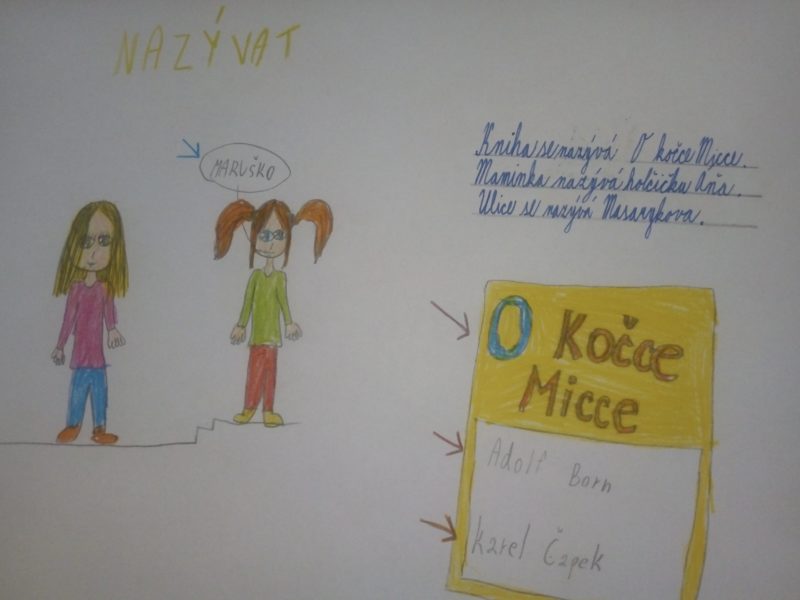 NAZÝVAT
MARUŠKO
Kniha se nazývá O kočce Micce.
Maminka nazývá holčičku Áňa.
Ulice se nazývá Masarykova.
O Kočce
Micce
Adolf Born
Karel Čapek